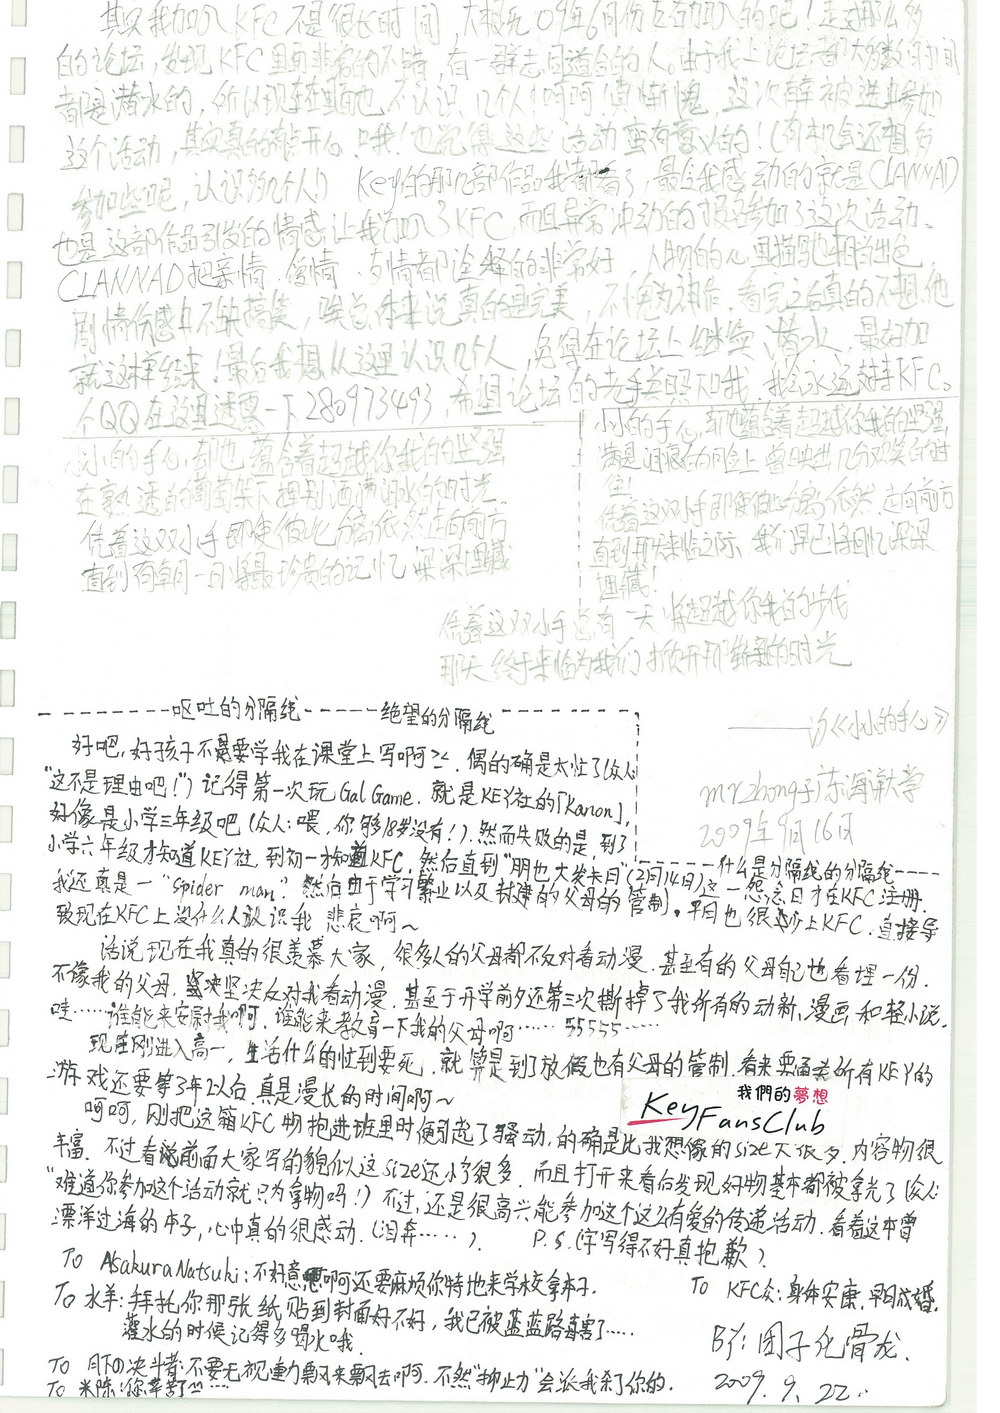 其实我加入KFC不是很长时间,大概是09年6月份左右加入的吧!走过那么多
的论坛,发现KFC里面非常的不错,有一群志同道合的人。由于我上论坛都大多数时间
都是潜水的,所以现在里面也不认识几个人!呵呵!真惭愧,这次幸被选中参加
这个活动,其实真的有点开心哦!也觉得这些活动蛮有意义的!(有机会还想多
参加些呢,认识多几个人) Key社的那几部作品我都看了,最令我感动的就是CLANNAD
也是这部作品引发的情感让我加入了KFC,而且异常冲动的报名参加了这次活动。
CLANNAD把亲情、爱情、友情都诠释的非常好,人物的心里描写也相当出色
剧情伤感中不缺搞笑,唉总体来说真的是完美,不愧为神作,看完之后真的不想他
就这样结束!最后我想从这里认识几个人,免得在论坛上继续潜水,最好加
个QQ在这里透露一下280973493,希望论坛的老手关照下我,我会永远支持KFC。
小小的手心,却也蕴含着超越你我的坚强
在熟透的葡萄架下挥别洒满泪水的时光
凭着这双小手即使彼此分离依然走向前方
直到有朝一日将最珍贵的记忆深深埋藏
小小的手心,却也蕴含着超越你我的坚强
满是泪痕的面容上曾映出几分欢笑的时
光!
凭着这双小手即使彼此分离依然走向前方
直到那天来临之际,我们早已将回忆深深
埋藏!
凭着这双小手总有一天将超越你我的步伐
那天终于来临为我们打开那崭新的时光
——《小小的手心》
mrzhong于广东海洋大学
2009年9月16日
--------呕吐的分隔线-----绝望的分隔线--------
好吧,好孩子不要学我在课堂上写啊>.<.偶的确是太忙了(众人:
“这不是理由吧!”)记得第一次玩Gal Game.就是KEY社的「Kanon」,
好像是小学三年级吧(众人:喂,你够18岁没有!).然而失败的是,到了
小学六年级才知道KEY社,到初一才知道KFC,然后直到“朋也大婚日”(2月14日)这一纪念日才在KFC注册.
-----什么是分隔线的分隔线----
我还真是一“spider man”?然后由于学习繁业以及封建的父母的管制。平日也很少上KFC.直接导
致现在KFC上没什么人认识我 悲哀啊~
话说现在我真的很羡慕大家,很多人的父母都不反对看动漫.甚至有的父母自己也看埋一份.
不像我的父母,坚决坚决反对我看动漫.甚至于开学前夕还第三次撕掉了我所有的动新,漫画和轻小说.
哇……谁能来安慰我啊.谁能来教育一下我的父母啊……55555……
现在刚进入高一,生活什么的忙到要死,就算是到了放假也有父母的管制.看来要通关所有KEY的
游戏还要等3年以后.真是漫长的时间啊~
我們的夢想
KeyFansClub
呵呵,刚把这箱KFC物抱进班里时便引起了骚动,的确是比我想像的size大很多.内容物很
丰富.不过看前面大家写的貌似这size还小了很多.而且打开来看后发现好物基本都被拿光了(众人:
“难道你参加这个活动就只为拿物吗!)不过,还是很高兴能参加这个这么有爱的传递活动.看着这本曾
漂洋过海的本子,心中真的很感动.(泪奔……). P.S.(字写得不好真抱歉?
To AsakuraNatsuki:不好意思啊还要麻烦你特地来学校拿本子.
To KFC众:身体安康,早日成婚.
To 水羊:拜托你那张纸贴到封面好不好,我已被蓝蓝路毒害了....
灌水的时候记得多喝水哦.
BY:团子化骨龙.
To 月下の决斗者:不要无视重力飘来飘去啊.不然“抑止力”会派我杀了你的.
2009.9.22..
To 米陈:你辛苦了……